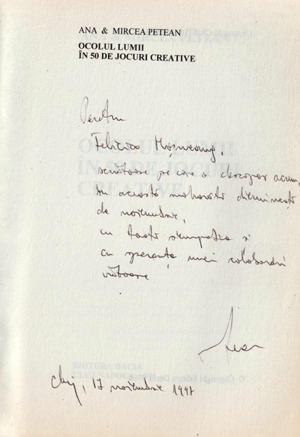 ANA & MIRCEA PETEAN
OCOLUL LUMII
ÎN 50 DE JOCURI CREATIVE
Pentru
Felicia
scriitoare pe care o descopăr acum,
în această dimineață
de noiembrie,
cu toată simpatia și
cu speranța unei colaborări
viitoare
Cluj, 17 noiembrie 1997